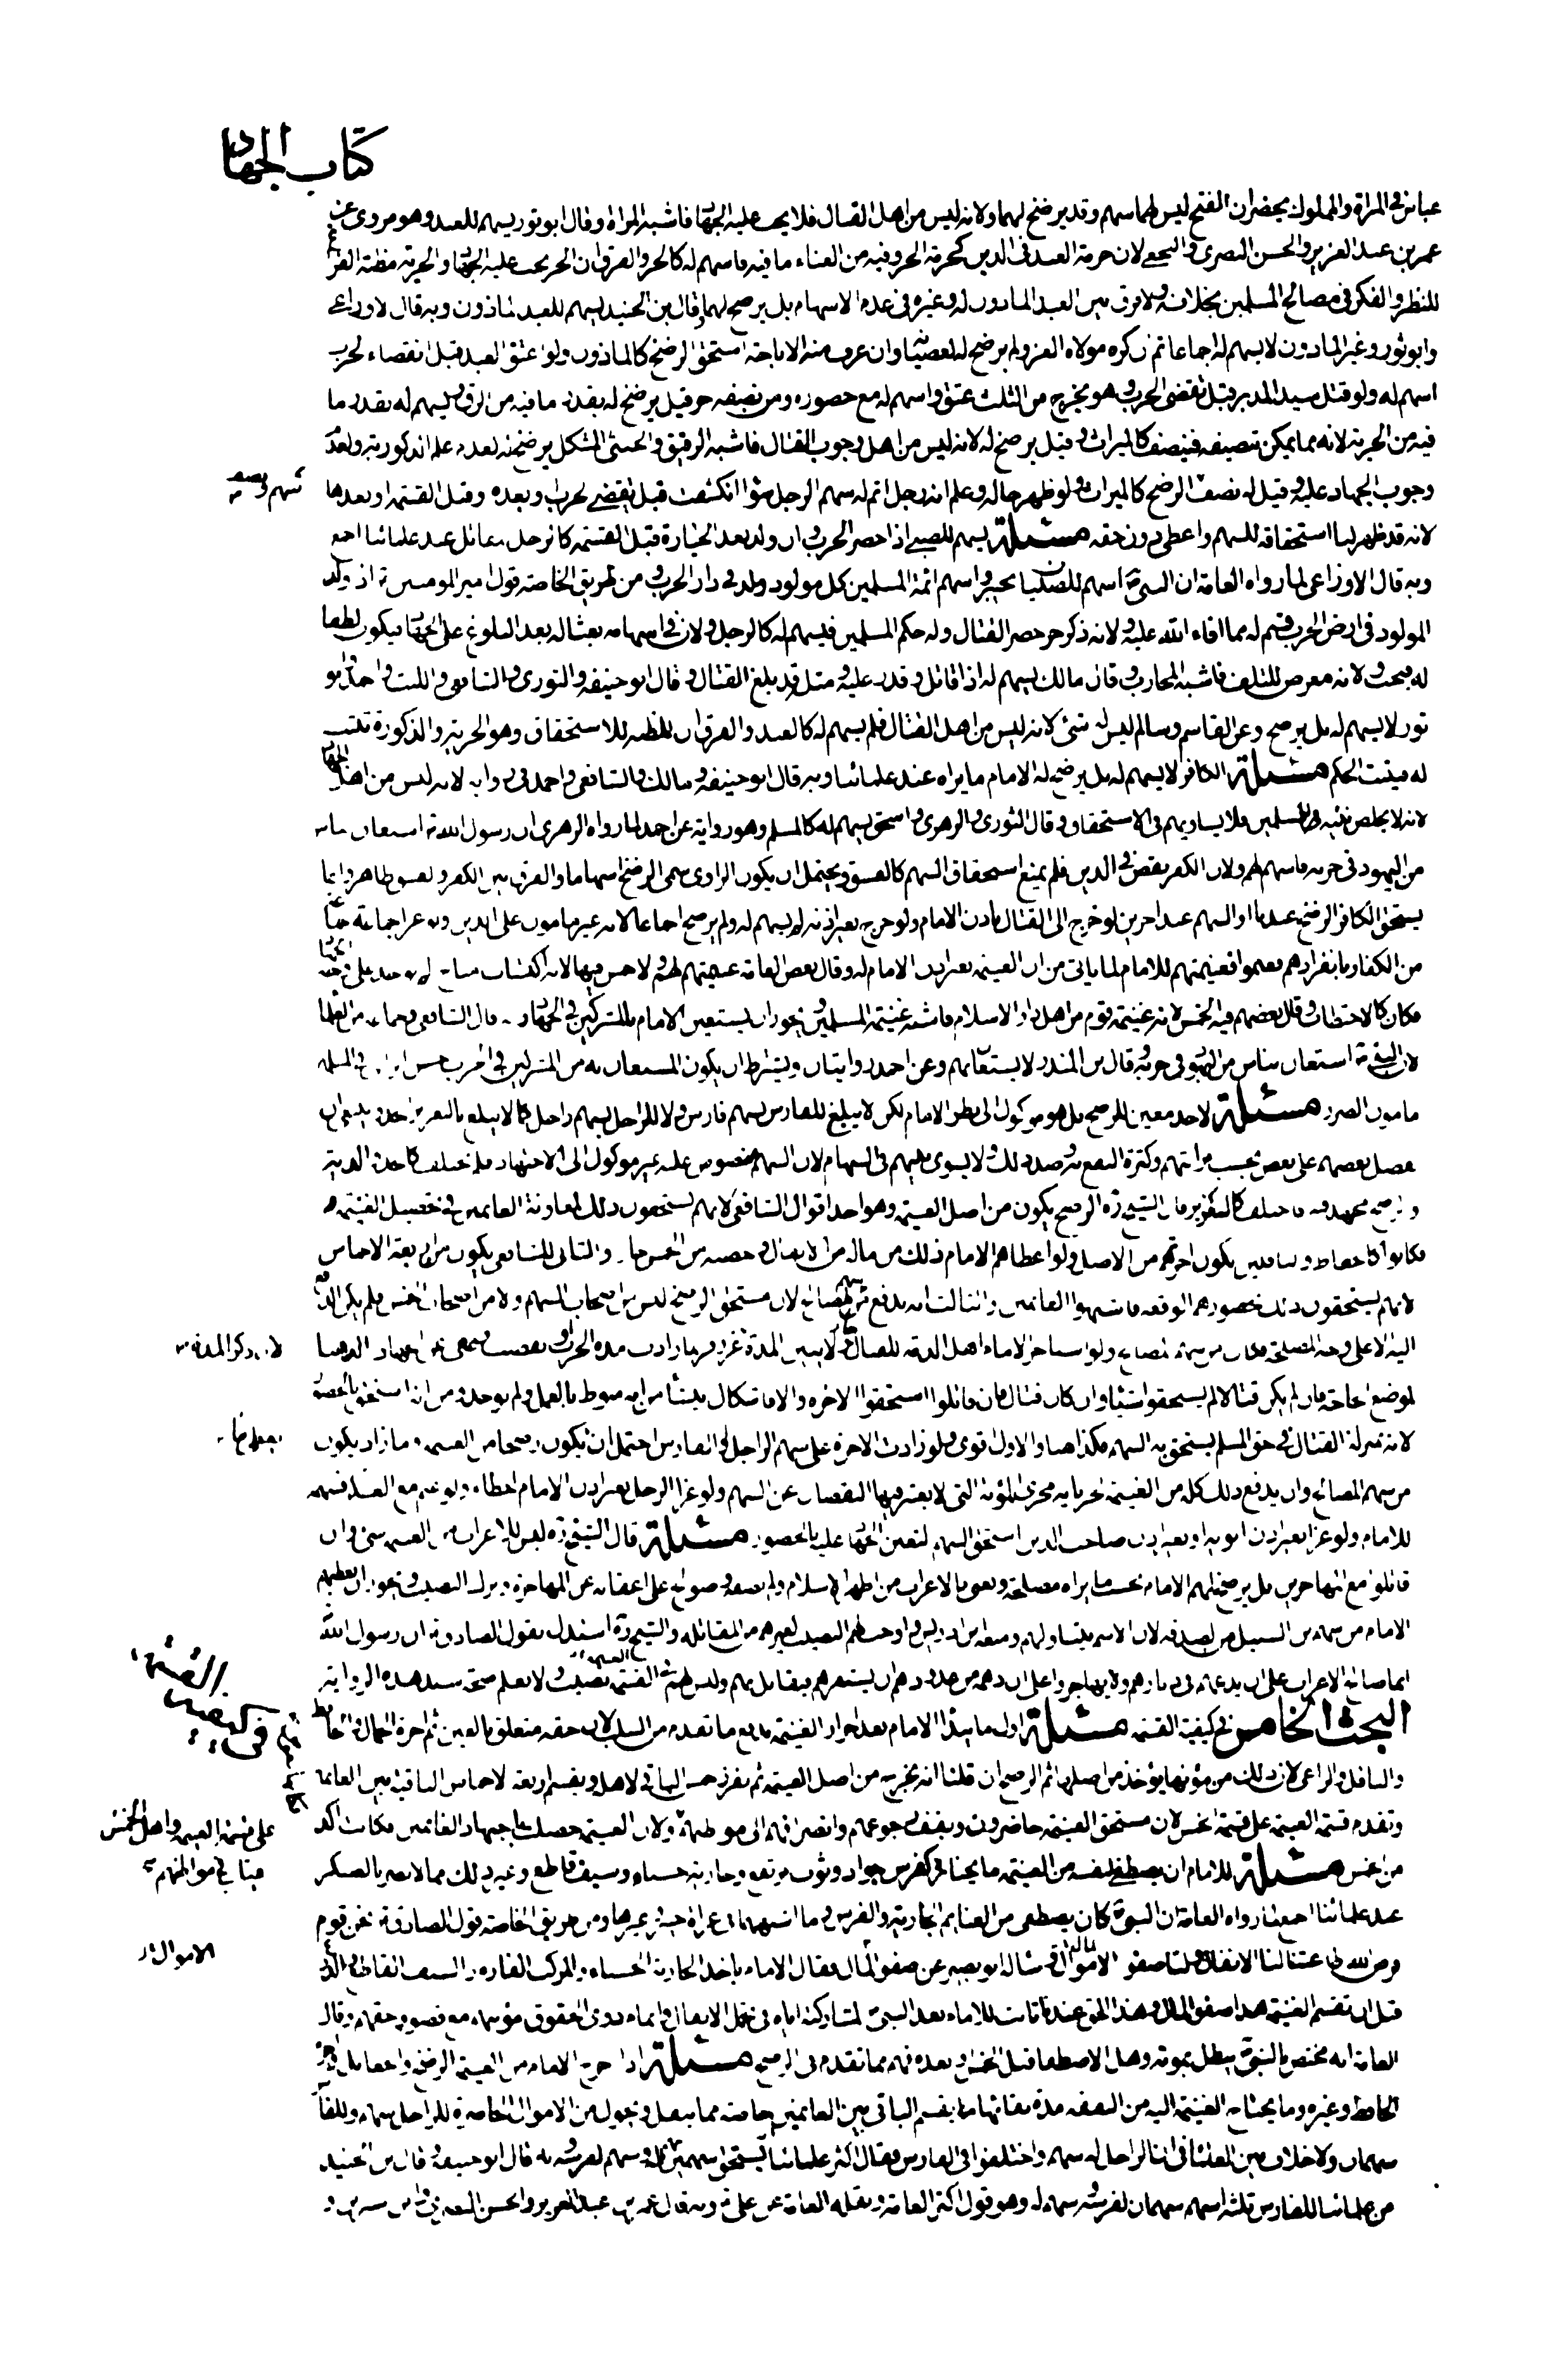 كتاب الجهاد
عباس في المراة والمملوك يحضران الفتح ليس لهما سهم وقد يرضخ لهما ولانه ليس من اهل القتال فلا يجب عليه الجهاد فاشبه المراة وقال ابو ثور يسهم للعبد وهو مروى عن
عمر بن عبد العزيز والحسن البصرى والنخعى لان حرمة العبد فى الدين كحرمة الحر وفيه من الغناء ما فيه فاسهم له كالحر والفرق ان الحر يجب عليه الجهاد والحرية مظنة الفراغ
للنظر والفكر فى مصالح المسلمين بخلافه ولا فرق بين العبد الماذون له وغيره فى عدم الاسهام بل يرضخ لهما وقال ابن الجنيد يسهم للعبد الماذون وبه قال الاوزاعى
وابو ثور وغير الماذون لا يسهم له اجماعا ثم ان كره مولاه الغزو لم يرضخ له لعصيانه وان عرف منه الاباحة استحق الرضخ كالماذون ولو اعتق العبد قبل انقضاء الحرب
اسهم له ولو قتل سيد المدبر قبل تقضى الحرب وهو يخرج من الثلث عتق واسهم له مع حضوره ومن نصفه حر قيل يرضخ له بقدر ما فيه من الرق ويسهم له بقدر ما
فيه من الحرية لانه مما يمكن تنصيفه فينصف كالميراث وقيل يرضخ له لانه ليس من اهل وجوب القتال فاشبه الرقيق والخنثى المشكل يرضخ له لعدم علم الذكورية ولعدم
وجوب الجهاد عليه وقيل له نصف الرضخ كالميراث ولو ظهر حاله وعلم انه رجل اتم له سهم الرجل سواء انكشف قبل تقضى الحرب او بعده وقبل القسمة او بعدها
لانه قد ظهر لنا استحقاقه للسهم واعطى دون حقه مسئلة يسهم للصبى اذا حضر الحرب وان ولد بعد الحيازة قبل القسمة كالرجل المقاتل عند علمائنا اجمع
وبه قال الاوزاعى لما رواه العامة ان النبى ص اسهم للصبيان بخيبر واسهم ائمة المسلمين كل مولود ولد فى دار الحرب ومن طريق الخاصة قول امير المومنين ع اذا ولد
المولود فى ارض الحرب قسم له مما افاء الله عليه ولانه ذكر حر حضر القتال وله حكم المسلمين فيسهم له كالرجل ولان فى اسهامه بعثا له بعد البلوغ على الجهاد فيكون لطفا
له فيجب ولانه معرض للتلف فاشبه المحارب وقال مالك يسهم له اذا قاتل وقدر عليه ومثله قد بلغ القتال وقال ابو حنيفة والثورى والشافعى والليث واحمد وابو
ثور لا يسهم له بل يرضخ وعن القاسم وسالم ليس له شئ لانه ليس من اهل القتال فلم يسهم له كالعبد والفرق ان المظنة للاستحقاق وهو الحرية والذكورة تثبت
له فيثبت الحكم مسئلة الكافر لا يسهم له بل يرضخ له الامام ما يراه عند علمائنا وبه قال ابو حنيفة ومالك والشافعى واحمد فى رواية لانه ليس من اهل الجهاد
لانه لا يخلص نيته للمسلمين فلا يساويهم فى الاستحقاق وقال الثورى والزهرى واسحق يسهم له كالمسلم وهو رواية عن احمد لما رواه الزهرى ان رسول الله ص استعان بناس
من اليهود فى حربه فاسهم لهم ولان الكفر نقص فى الدين فلم يمنع استحقاق السهم كالفسق ويحتمل ان يكون الراوى سمى الرضخ اسهاما والفرق بين الكفر والفسق ظاهر وانما
يستحق الكافر الرضخ عندنا او السهم عند اخرين لو خرج الى القتال باذن الامام ولو خرج بغير اذنه لم يسهم له ولم يرضخ اجماعا لانه غير مامون على الدين ولو غزا جماعة
من الكفار بانفرادهم فغنموا فغنيمتهم للامام لما ياتى من ان الغنيمة بغير اذن الامام له وقال بعض العامة غنيمتهم لهم ولا خمس فيها لانه اكتساب مباح لم يوخذ على وجه الجهاد
فكان كالاحتطاب وقال بعضهم فيه الخمس لانه غنيمة قوم من اهل دار الاسلام فاشبه غنيمة المسلمين ويجوز ان يستعين الامام بالمشركين فى الجهاد وبه قال الشافعى وجماعة من العلماء
لان النبى ص استعان بناس من اليهود فى حربه وقال ابن المنذر لا يستعان بهم وعن احمد روايتان ويشترط ان يكون المستعان به من المشركين فى الحرب حسن الراى فى المسلمين
مامون الضرر مسئلة لا حد معين للرضخ بل هو موكول الى نظر الامام لكن لا يبلغ للفارس سهم فارس ولا للراجل سهم راجل كما لا يبلغ بالتعزير الحد وينبغى ان
يفضل بعضهم على بعض بحسب مراتبهم وكثرة النفع به وضد ذلك ولا يسوى بينهم فى السهام لان السهم منصوص عليه غير موكول الى الاجتهاد فلم يختلف كالحد والدية
والرضخ مجتهد فيه فاختلف كالتعزير قال الشيخ ره الرضخ يكون من اصل الغنيمة وهو احد اقوال الشافعى لانهم يستحقون ذلك لمعاونة الغانمين فى تحصيل الغنيمة
فكانوا كالحفاظ والناقلين يكون اجرتهم من الاصل ولو اعطاهم الامام ذلك من ماله من الانفال وحصته من الخمس جاز والثانى للشافعى يكون من اربعة الاخماس
لانهم يستحقون ذلك بحضورهم الوقعة فاشبهوا الغانمين والثالث انه يدفع من سهم المصالح لان مستحق الرضخ ليس من اصحاب السهم ولا من اصحاب الخمس فلم يكن الدفع
اليه الا على وجه المصلحة فكان من سهم المصالح ولو استاجر الامام اهل الذمة للقتال جاز ولا يبين المدة
لموضع الحاجة فان لم يكن قتال لم يستحقوا شيئا وان كان قتال فان قاتلوا استحقوا الاجرة والا فاشكال ينشا من انه منوط بالعمل ولم يوجد ومن انه استحق بالحضور
لانه بمنزلة القتال فى حق المسلم يستحق به السهم فكذا هنا والاول اقوى ولو زادت الاجرة على سهم الراجل او الفارس احتمل ان يكون رضخا من الغنيمة وما زاد يكون
من سهم المصالح وان يدفع ذلك كله من الغنيمة لجريانه مجرى المؤنة التى لا يعتبر فيها النقصان عن السهم ولو غزا الرجل بغير اذن الامام اخطا ولو غنم مع العسكر فسهمه
للامام ولو غزا بغير اذن ابويه او بغير اذن صاحب الدين استحق السهم لتعين الجهاد عليه بالحضور مسئلة قال الشيخ ره ليس للاعراب من الغنيمة شئ وان
قاتلوا مع المهاجرين بل يرضخ لهم الامام بحسب ما يراه مصلحة ونعنى بالاعراب من اظهر الاسلام ولم يصفه وصولح على اعفائه عن المهاجرة وترك النصيب ويجوز ان يعطيهم
الامام من سهم ابن السبيل من الصدقة لان الاسم يتناولهم ومنعه ابن ادريس واوجب لهم النصيب كغيرهم من المقاتلة والشيخ ره استدل بقول الصادق ع ان رسول الله ص
انما صالح الاعراب على ان يدعهم فى ديارهم ولا يهاجروا على ان دهمه من عدوه دهم ان يستفزهم فيقاتل بهم وليس لهم فى الغنيمة نصيب ولا نعلم صحة سند هذه الرواية
البحث الخامس فى كيفية القسمة مسئلة اول ما يبدا الامام بعد احراز الغنيمة بدفع ما تقدم من السلب لان حقه متعلق بالعين ثم اجرة الحمال والحافظ
والناقل والراعى لان ذلك من مؤنها يؤخذ من اصلها ثم الرضخ ان قلنا انه يخرج من اصل الغنيمة ثم يفرز خمس الباقى لاهله ويقسم اربعة الاخماس الباقية بين الغانمين
وتقدم قسمة الغنيمة على قسمة الخمس لان مستحق الغنيمة حاضرون ويقف رجوعهم وانصرافهم الى مواطنهم ولان الغنيمة حصلت باجتهاد الغانمين فكانت اكد
من الخمس مسئلة للامام ان يصطفى لنفسه من الغنيمة ما يختاره كفرس جواد وثوب مرتفع وجارية حسناء وسيف قاطع وغير ذلك مما لا يضر بالعسكر
عند علمائنا اجمع لما رواه العامة ان النبى ص كان يصطفى من الغنايم الجارية والفرس وما اشبههما فى غزاة خيبر وغيرها ومن طريق الخاصة قول الصادق ع نحن قوم
فرض الله طاعتنا لنا الانفال ولنا صفو الاموال وساله ابو بصير عن صفو المال فقال الامام ياخذ الجارية الحسناء والمركب الفاره والسيف القاطع والدرع
قبل ان تقسم الغنيمة هذا صفو المال وهذا الحق عندنا ثابت للامام بعد النبى ص لمشاركته اياه فى تحمل الاثقال وايتاء ذوى الحقوق مؤنتهم مع قصور حقهم وقال
العامة انه مختص بالنبى ص يبطل بموته وهل الاصطفا قبل الخمس او بعده فيه مما تقدم فى الرضخ مسئلة اذا اخرج الامام من الغنيمة الرضخ والجعايل واجرة
الحافظ وغيره وما يحتاج الغنيمة اليه من النفقة مدة بقائها ثم يقسم الباقى بين الغانمين خاصة مما ينقل ويحول من الاموال الحاضرة للراجل سهم وللفارس
سهمان ولا خلاف بين العلماء فى ان للراجل له سهم واختلفوا فى الفارس فقال اكثر علمائنا يستحق سهمين سهم له وسهم لفرسه وبه قال ابو حنيفة وقال ابن الجنيد
من علمائنا للفارس ثلثة اسهم سهمان لفرسه وسهم له وهو قول اكثر العامة ونقله العامة عن على ع وبه قال عمر بن عبد العزيز والحسن البصرى وابن سيرين و
فى كيفية القسمة
على قسمة الغنيمة واهل الخمس
الاموال